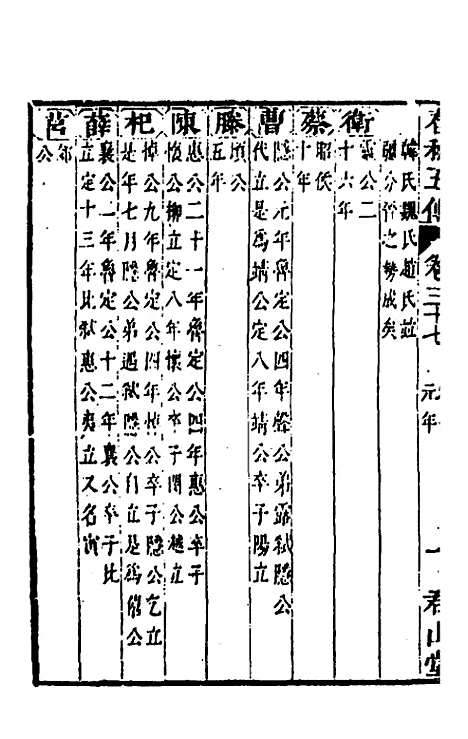 春秋五傳 卷三十七 元年 一 君山堂
韓氏魏氏趙氏益
強分晉之勢成矣
衛
靈公二
十六年
蔡
昭侯
十年
曹
隱公元年魯定公四年聲公弟露弒隱公
代立是為靖公定八年靖公卒子陽立
滕
頃公
五年
陳
惠公二十一年魯定公四年惠公卒子
懷公柳立定八年懷公卒子閔公越立
杞
悼公九年魯定公四年悼公卒子隱公乞立
是年七月隱公弟遇弒隱公自立是為僖公
薛
襄公一年魯定公十二年襄公卒子比
立定十三年比弒惠公夷立又名寅
莒
郊
公